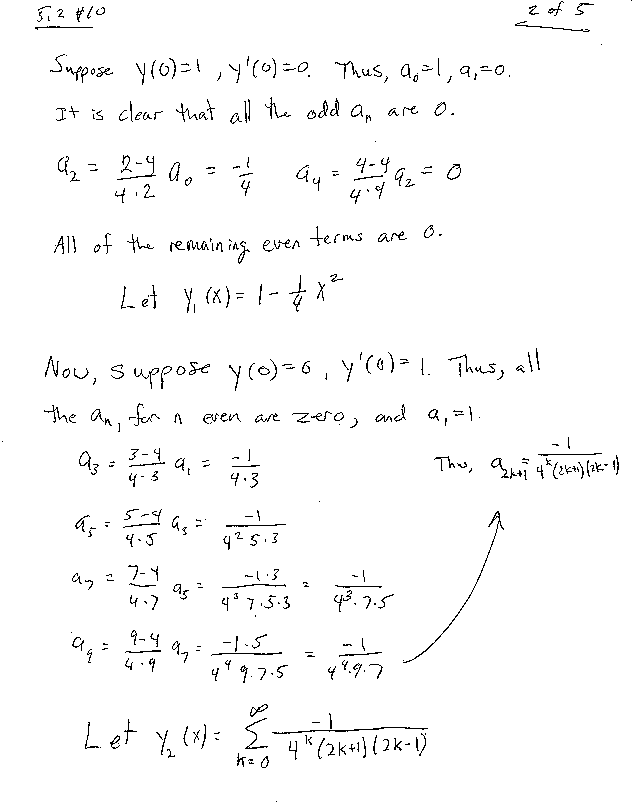 5.2 #10
2 of 5
Suppose y(0)=1, y'(0)=0. Thus, a₀=1, a₁=0.
It is clear that all the odd aₙ are 0.
a₂ = (2-4)/(4·2) a₀ = -1/4   a₄ = (4-4)/(4·4) a₂ = 0
All of the remaining even terms are 0.
Let y₁(x) = 1 - 1/4 x²
Now, suppose y(0)=0, y'(0)=1. Thus, all
the aₙ, for n even are zero, and a₁=1.
a₃ = (3-4)/(4·3) a₁ = -1/(4·3)
Thus, a₂ₖ₊₁ = -1/(4ᵏ(2k+1)(2k-1))
a₅ = (5-4)/(4·5) a₃ = -1/(4² 5·3)
a₇ = (7-4)/(4·7) a₅ = (-1·3)/(4³ 7·5·3) = -1/(4³·7·5)
a₉ = (9-4)/(4·9) a₇ = (-1·5)/(4⁴ 9·7·5) = -1/(4⁴·9·7)
Let y₂(x) = ∑_{k=0}^{∞} -1/(4ᵏ(2k+1)(2k-1))